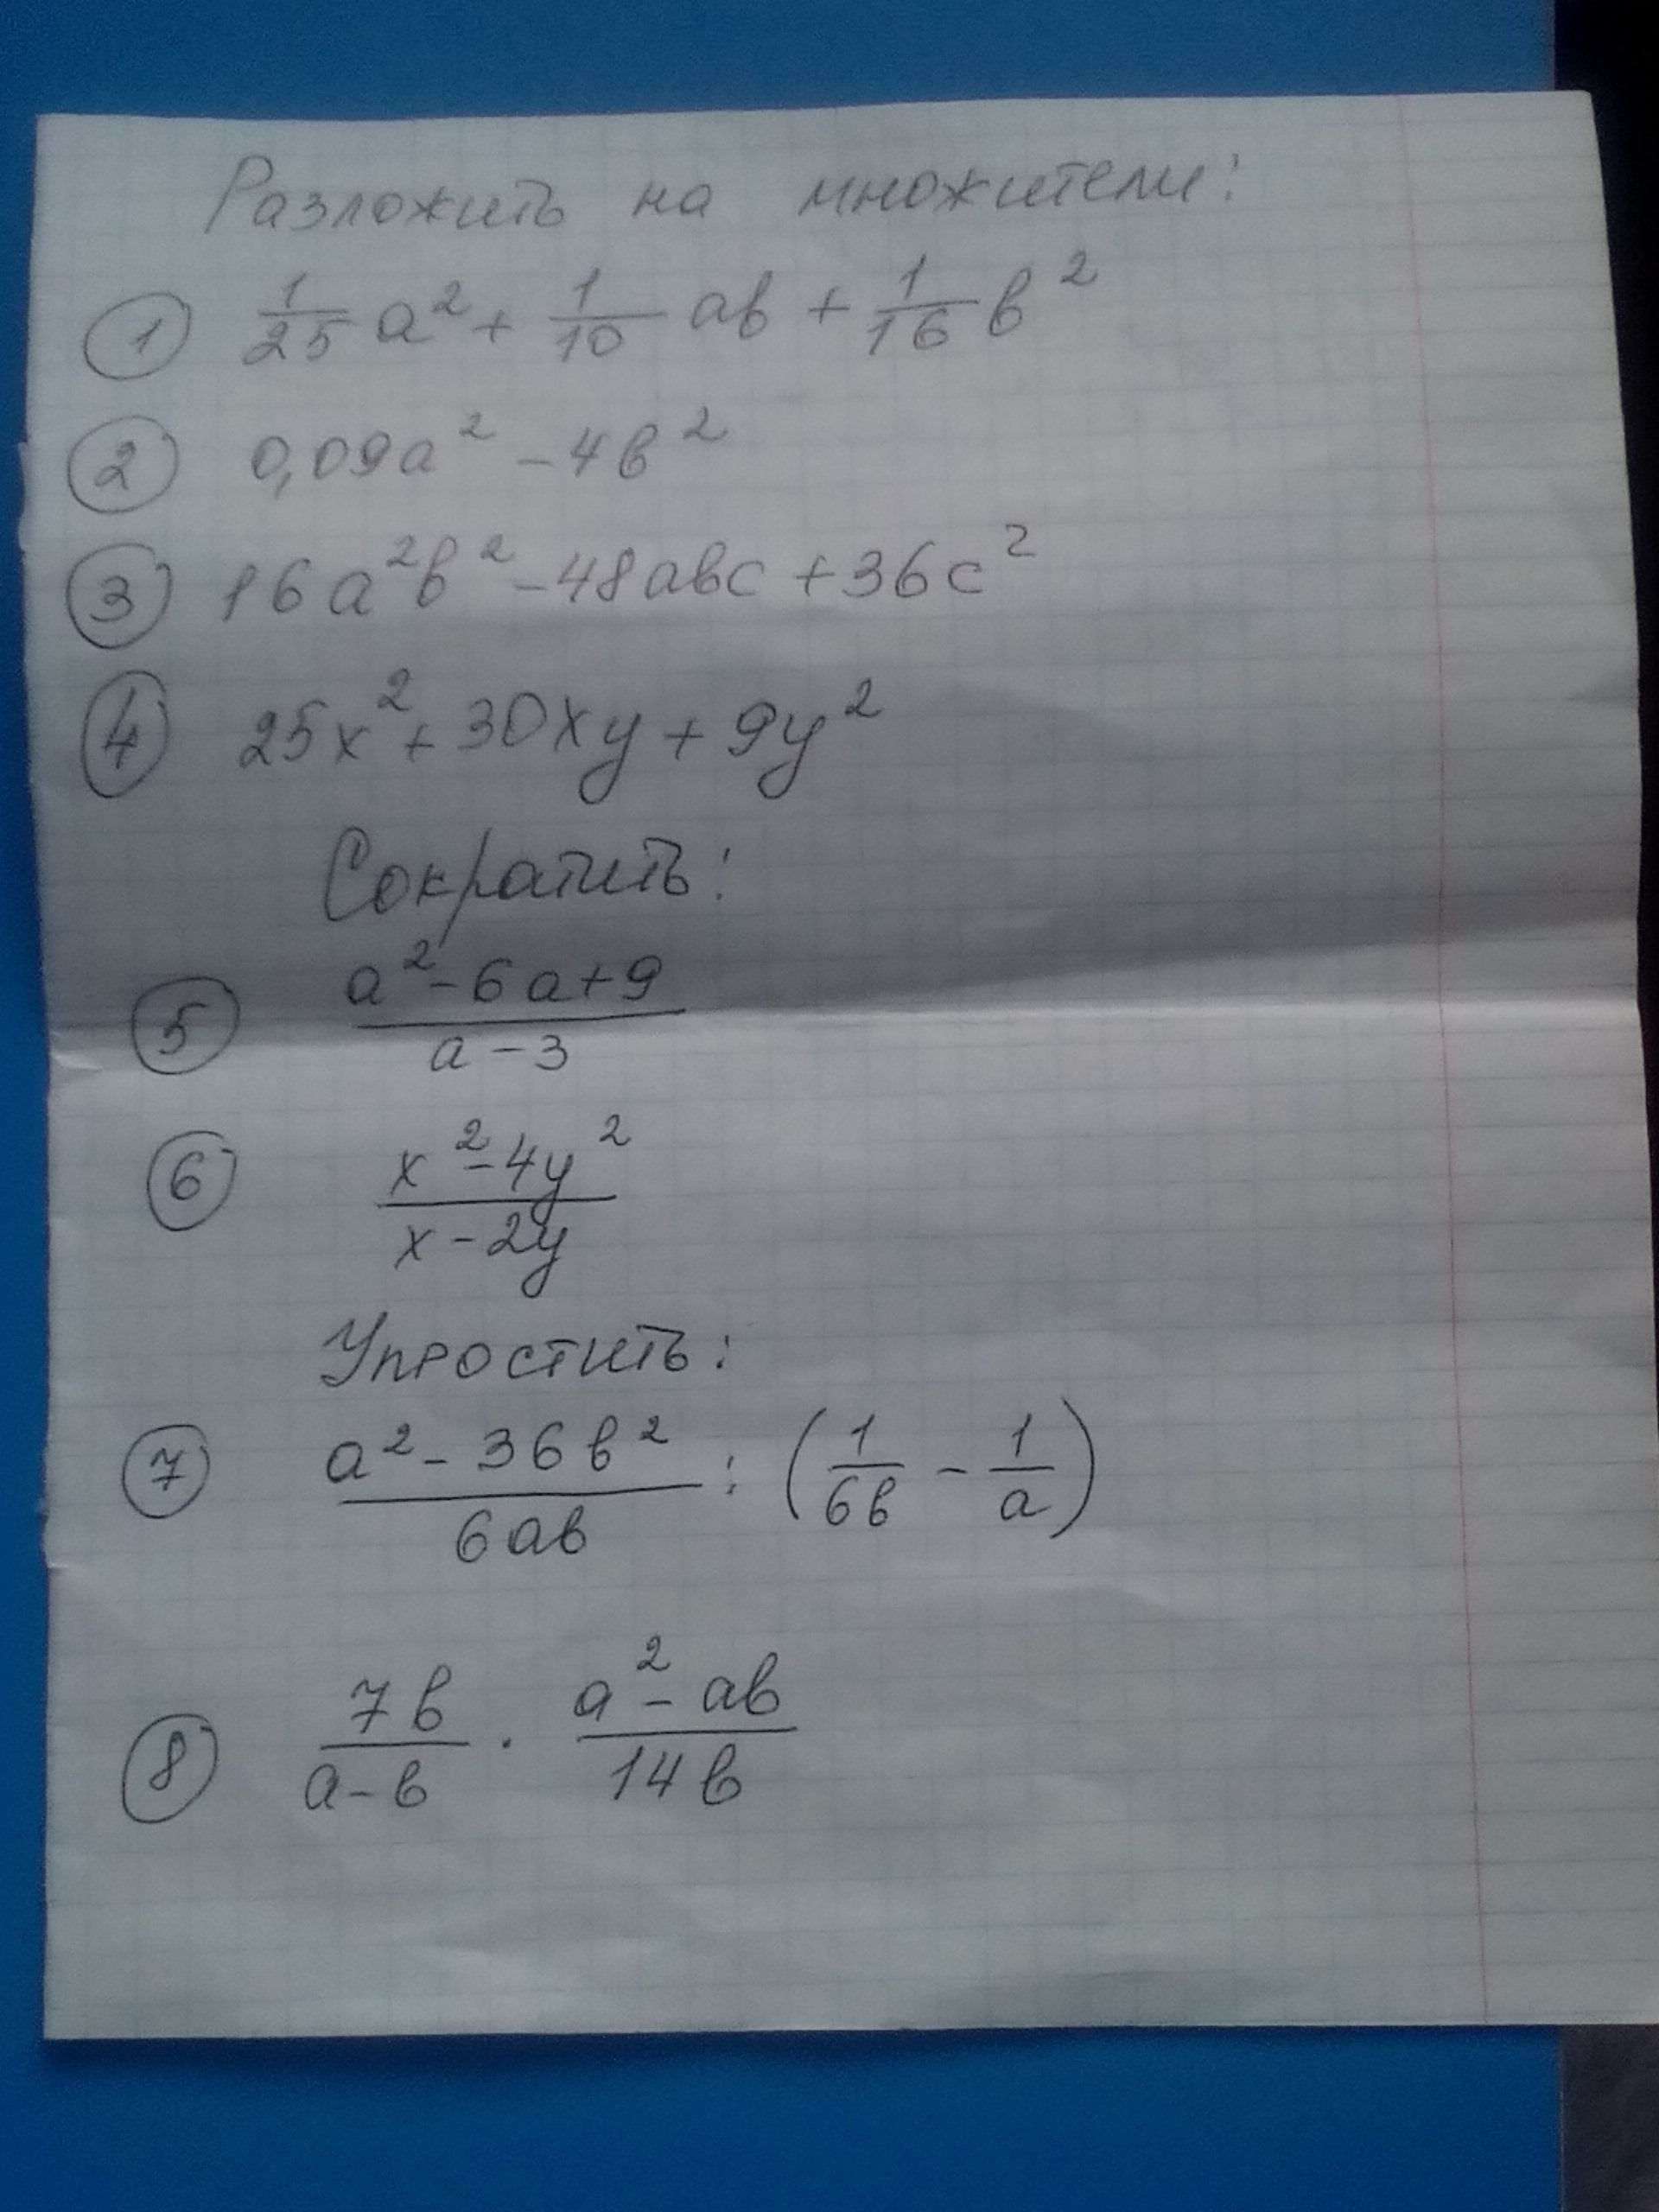 Разложить на множители:
① 1/25 a² + 1/10 ab + 1/16 b²
② 0,09a² - 4b²
③ 16a²b² - 48abc + 36c²
④ 25x² + 30xy + 9y²
Сократить:
⑤ (a² - 6a + 9)/(a - 3)
⑥ (x² - 4y²)/(x - 2y)
Упростить:
⑦ (a² - 36b²)/(6ab) : (1/(6b) - 1/a)
⑧ (7b)/(a - b) · (a² - ab)/(14b)